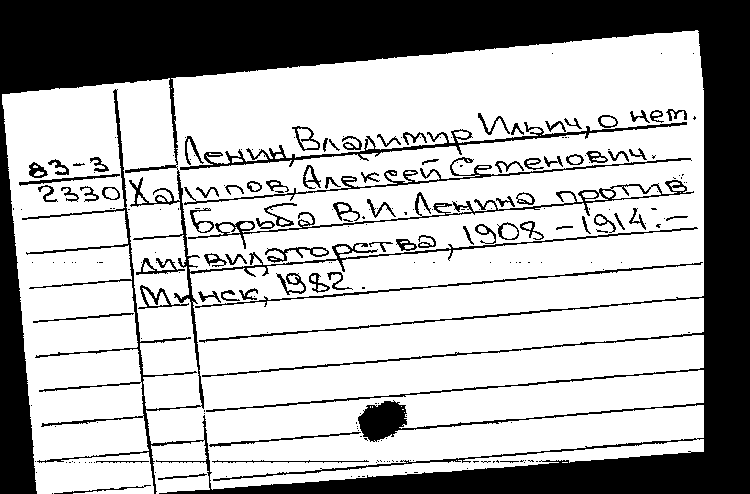 Ленин, Владимир Ильич, о нем.
83-3
2330 Халипов, Алексей Семенович.
Борьба В.И. Ленина против
ликвидаторства, 1908 - 1914. -
Минск, 1982.